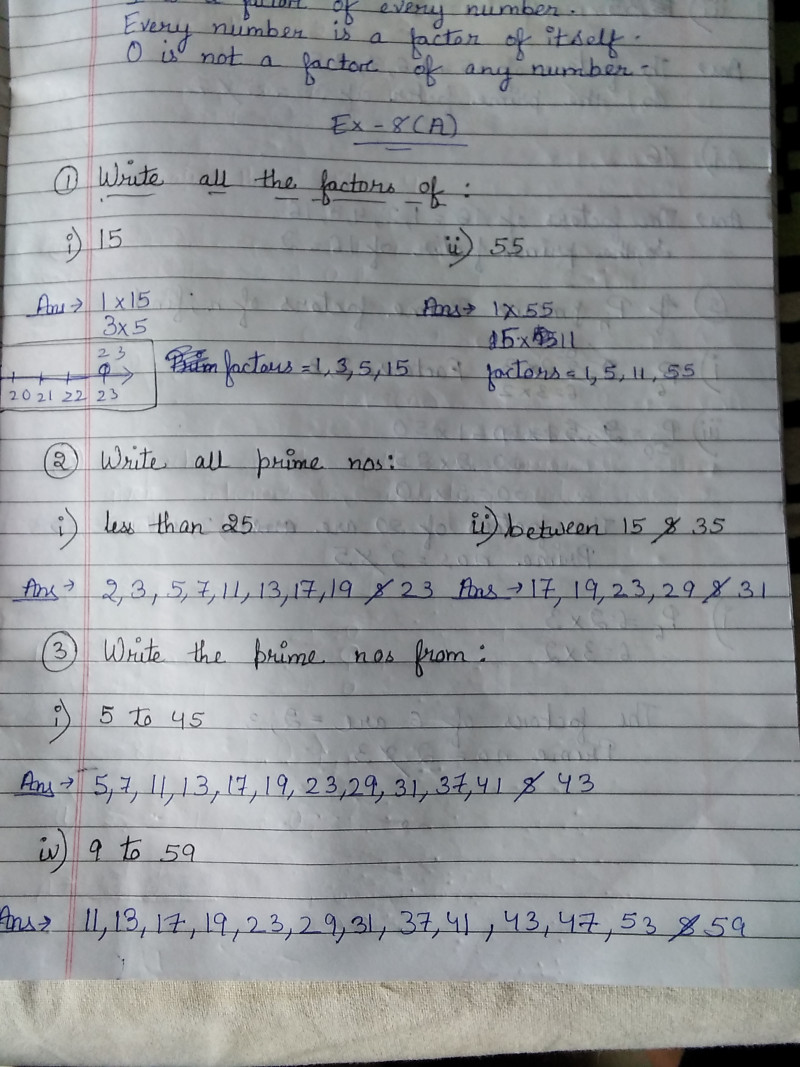 is a factor of every number.
Every number is a factor of itself.
0 is not a factor of any number.
Ex - 8(A)
① Write all the factors of :
i) 15 ii) 55
Ans → 1 x 15 Ans → 1 x 55
3 x 5 5 x 11
23
factors = 1, 3, 5, 15 factors = 1, 5, 11, 55
20 21 22 23
② Write all prime nos:
i) less than 25 ii) between 15 & 35
Ans → 2, 3, 5, 7, 11, 13, 17, 19 & 23 Ans → 17, 19, 23, 29 & 31
③ Write the prime nos from :
i) 5 to 45
Ans → 5, 7, 11, 13, 17, 19, 23, 29, 31, 37, 41 & 43
iv) 9 to 59
Ans → 11, 13, 17, 19, 23, 29, 31, 37, 41, 43, 47, 53 & 59